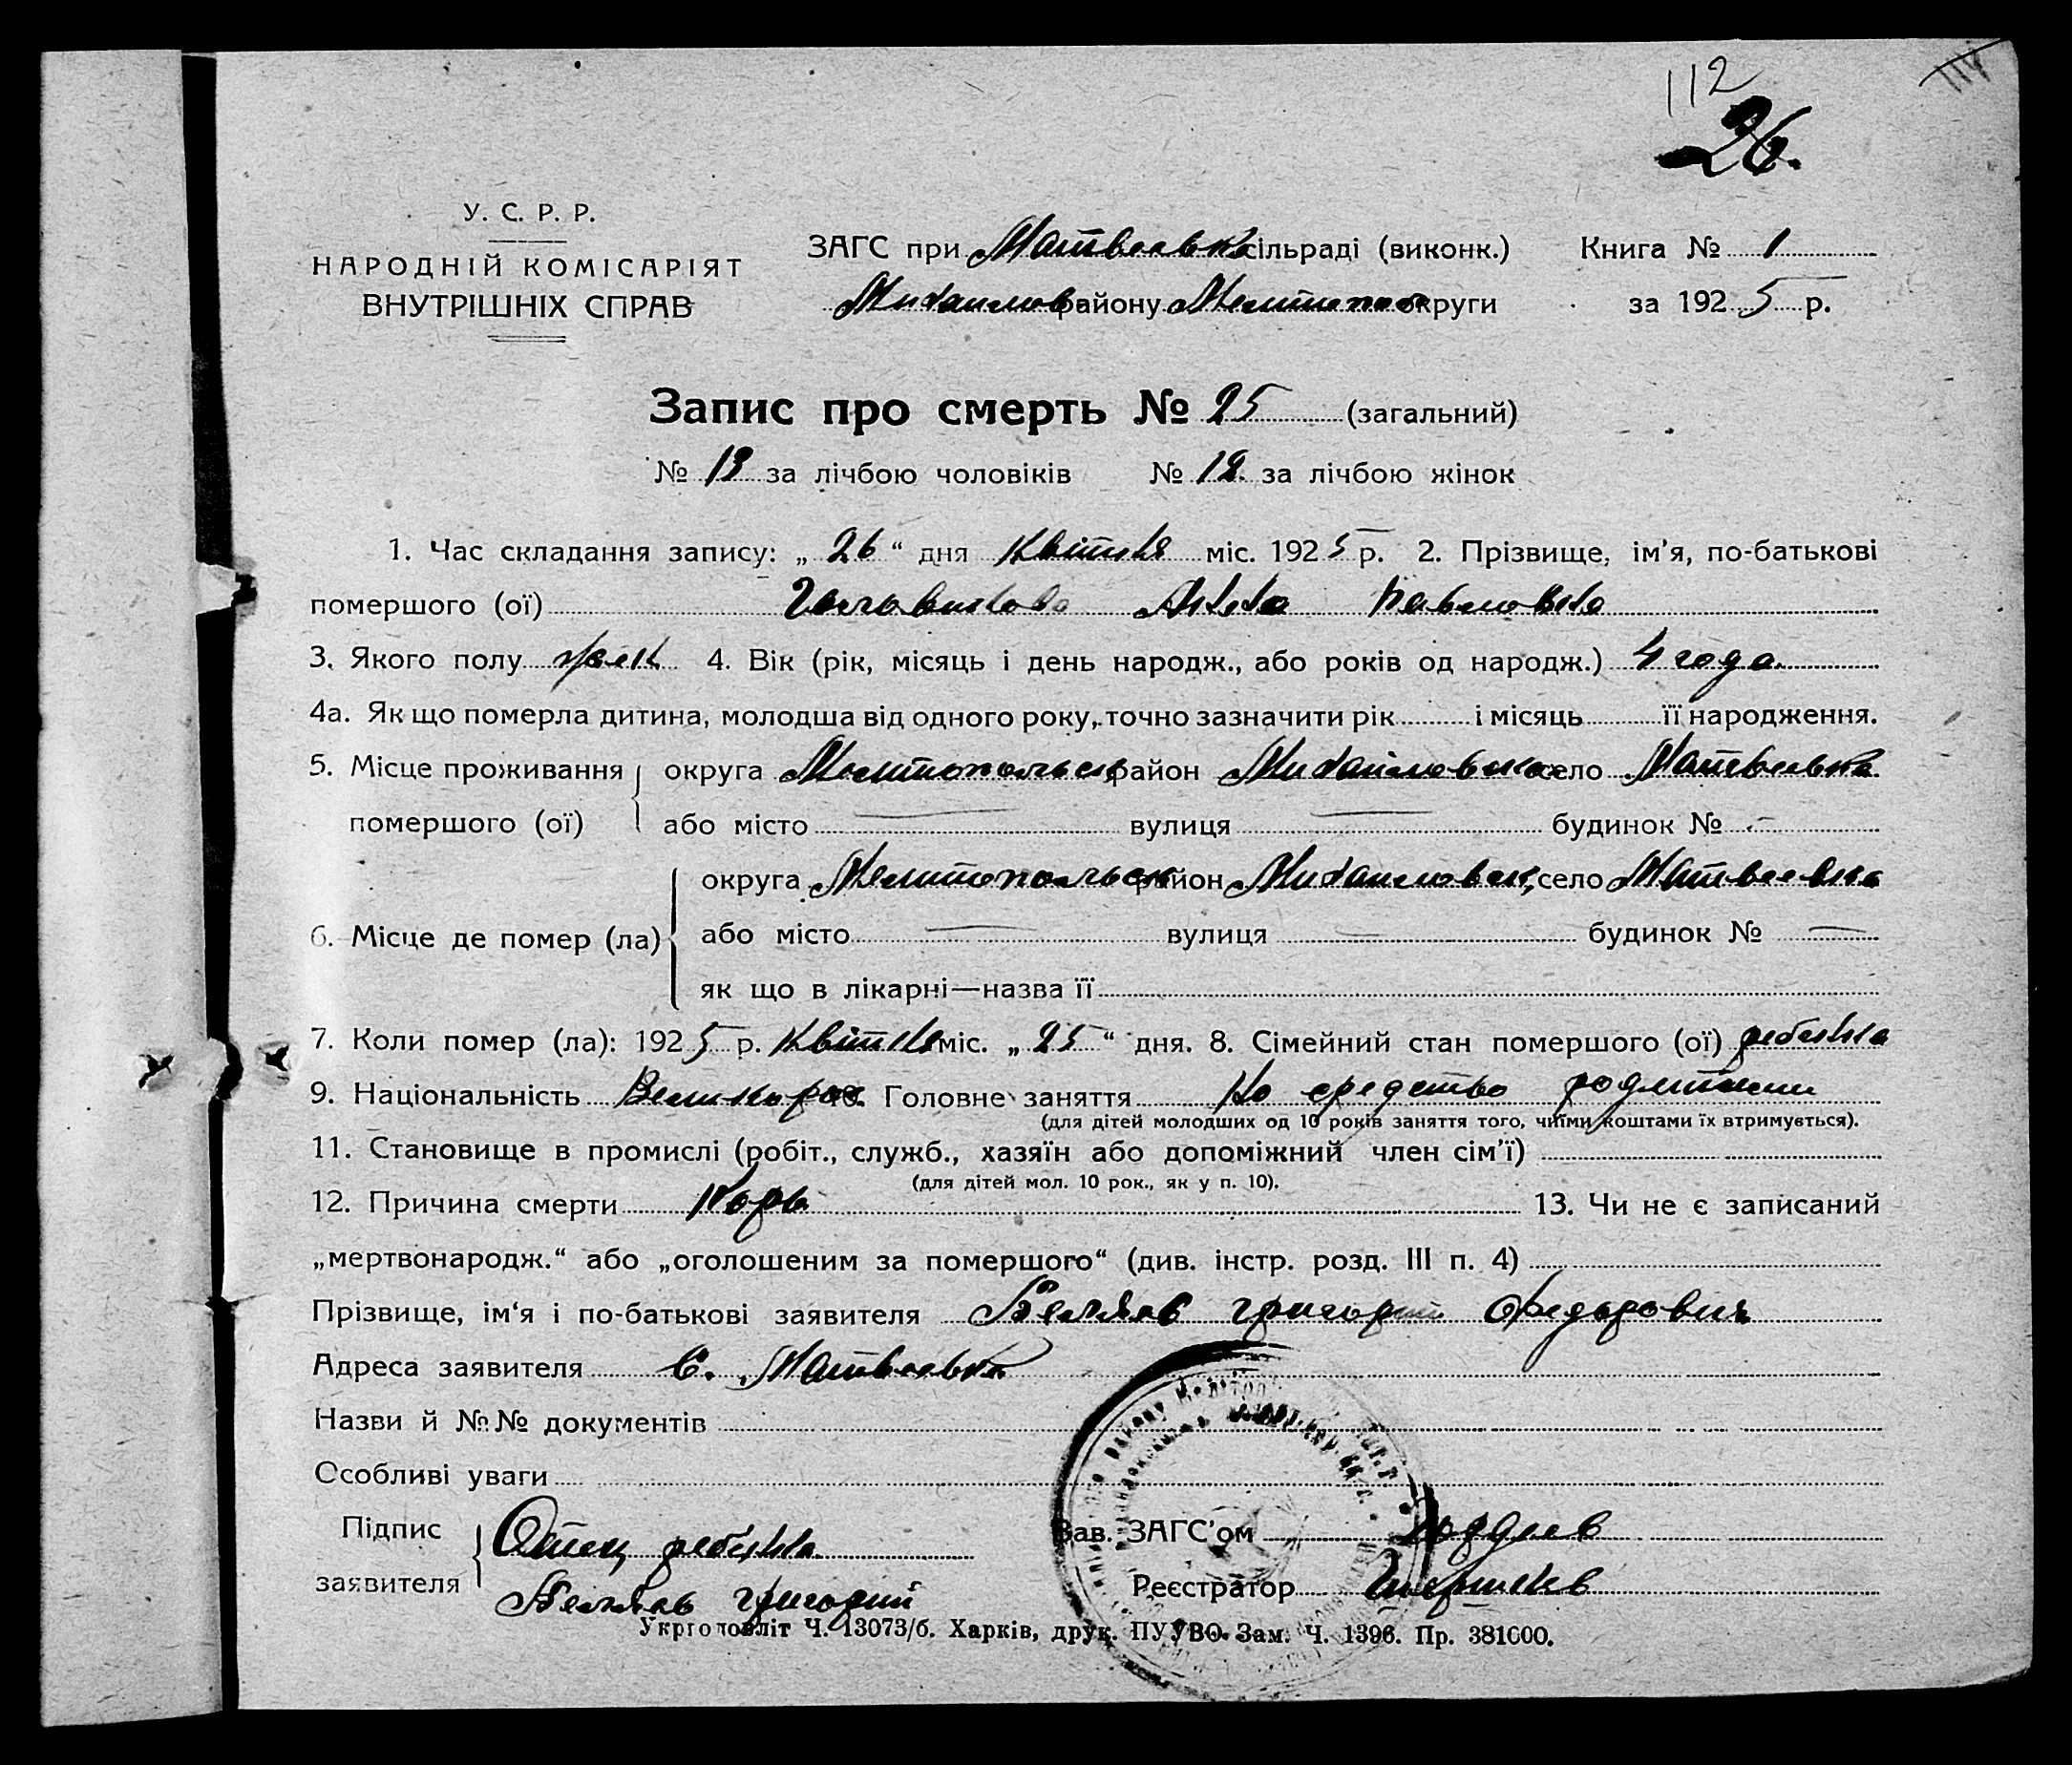 112
26.
У. С. Р. Р.
НАРОДНІЙ КОМІСАРІЯТ
ВНУТРІШНІХ СПРАВ
ЗАГС при Матвеевк сільраді (виконк.) Книга № 1
Михайлов району Мелитопол округи за 1925 р.
Запис про смерть № 25 (загальний)
№ 13 за лічбою чоловіків № 12 за лічбою жінок
1. Час складання запису: „ 26 “ дня Квітня міс. 1925 р. 2. Прізвище, ім’я, по-батькові
помершого (ої) Анна Павловна
3. Якого полу жен 4. Вік (рік, місяць і день народж., або років од народж.) 4 года
4а. Як що померла дитина, молодша від одного року, точно зазначити рік і місяць її народження.
5. Місце проживання округа Мелитопольск район Михайловка село Матвеевка
помершого (ої) або місто вулиця будинок №
округа Мелитопольск район Михайловск, село Матвеевка
6. Місце де помер (ла) або місто вулиця будинок №
як що в лікарні—назва її
7. Коли помер (ла): 1925 р. Квітня міс. „ 25 “ дня. 8. Сімейний стан помершого (ої) ребинка
9. Національність Великорос 10. Головне заняття На средство родителей
(для дітей молодших од 10 років заняття того, чиїми коштами їх втримується).
11. Становище в промислі (робіт., служб., хазяїн або допоміжний член сім’ї)
(для дітей мол. 10 рок., як у п. 10).
12. Причина смерти Корь 13. Чи не є записаний
„мертвонародж.“ або „оголошеним за помершого“ (див. інстр. розд. III п. 4)
Прізвище, ім‘я і по-батькові заявителя Беляев Григорий Федорович
Адреса заявителя С. Матвеевка
Назви й №№ документів
Особливі уваги
Підпис Отец ребинка Зав. ЗАГС’ом
заявителя Беляев Григорий Реєстратор
Укрголовліт Ч. 13073/б. Харків, друк. ПУУВО. Зам. Ч. 1396. Пр. 381000.